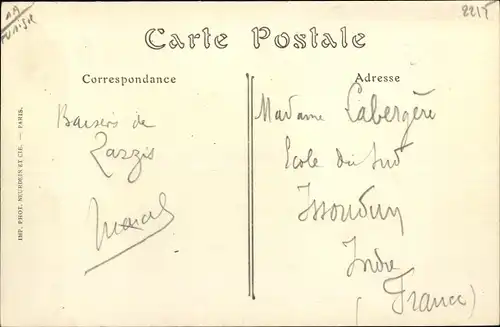 1A
TUNISIE
2215
Carte Postale
Correspondance
Adresse
Baisers de
Zarzis
Marcel
Madame Labergère
Ecole du Sud
Issoudun
Indre
(France)
IMP. PHOT. NEURDEIN ET CIE. — PARIS.